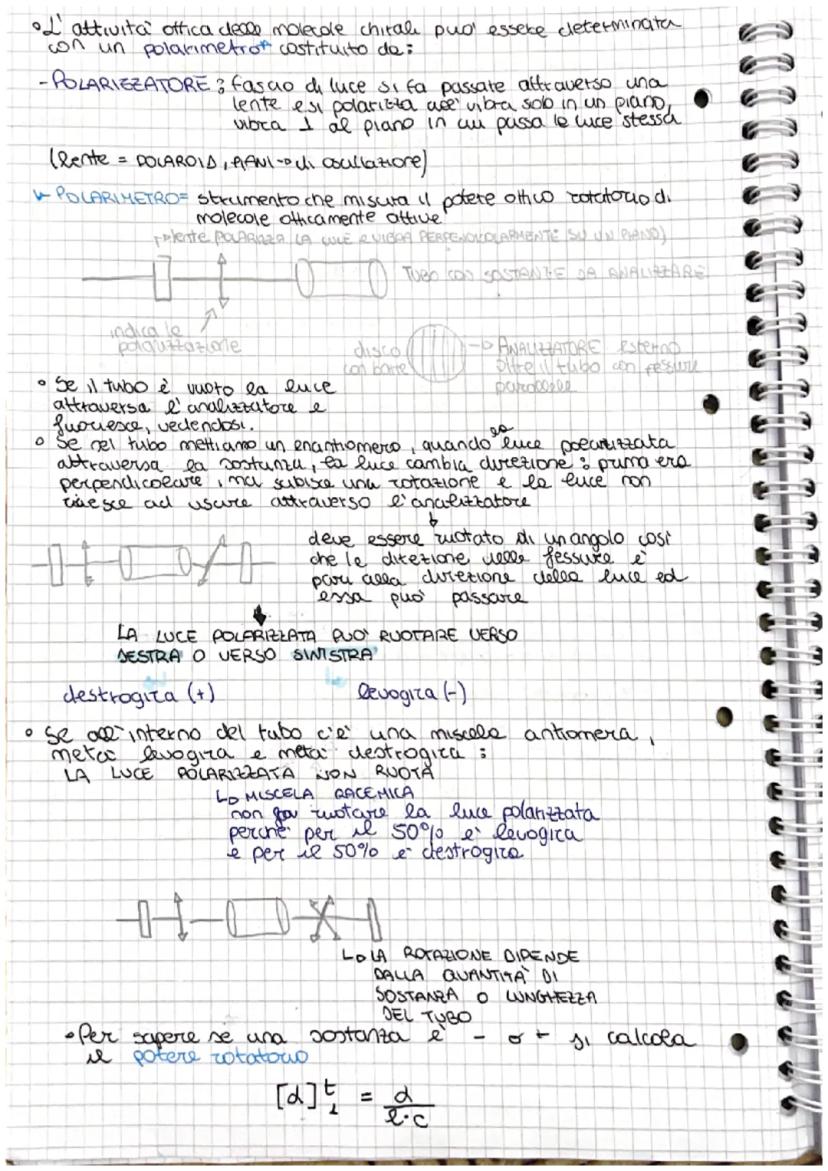 • L'attività ottica delle molecole chirali può essere determinata
con un polarimetro* costituito da:
- POLARIZZATORE: fascio di luce si fa passare attraverso una
lente e si polarizza cioè vibra solo in un piano,
vibra ⊥ al piano in cui passa la luce stessa
(lente = POLAROID, PIANI → di oscillazione)
* POLARIMETRO = strumento che misura il potere ottico rotatorio di
molecole otticamente attive
lente POLARIZZA LA LUCE E VIBRA PERPENDICOLARMENTE SU UN PIANO)
TUBO CON SOSTANZE DA ANALIZZARE
indica la
polarizzazione
disco
con barre
→ ANALIZZATORE esterno
oltre il tubo con fessure
parallele
• Se il tubo è vuoto la luce
attraversa l'analizzatore e
fuoriesce, vedendosi.
• Se nel tubo mettiamo un enantiomero, quando la luce polarizzata
attraversa la sostanza, la luce cambia direzione: prima era
perpendicolare, ma subisce una rotazione e la luce non
riesce ad uscire attraverso l'analizzatore
deve essere ruotato di un angolo così
che la direzione delle fessure è
pari alla direzione della luce ed
essa può passare
LA LUCE POLARIZZATA PUO' RUOTARE VERSO
DESTRA O VERSO SINISTRA
destrogira (+) levogira (-)
• Se all'interno del tubo c'è una miscela antiomera,
metà levogira e metà destrogira:
LA LUCE POLARIZZATA NON RUOTA
↳ MISCELA RACEMICA
non fa ruotare la luce polarizzata
perché per il 50% è levogira
e per il 50% è destrogira
↳ LA ROTAZIONE DIPENDE
DALLA QUANTITÀ DI
SOSTANZA O LUNGHEZZA
DEL TUBO
• Per sapere se una sostanza è - o + si calcola
il potere rotatorio
[α]ᵗ = α
l·c